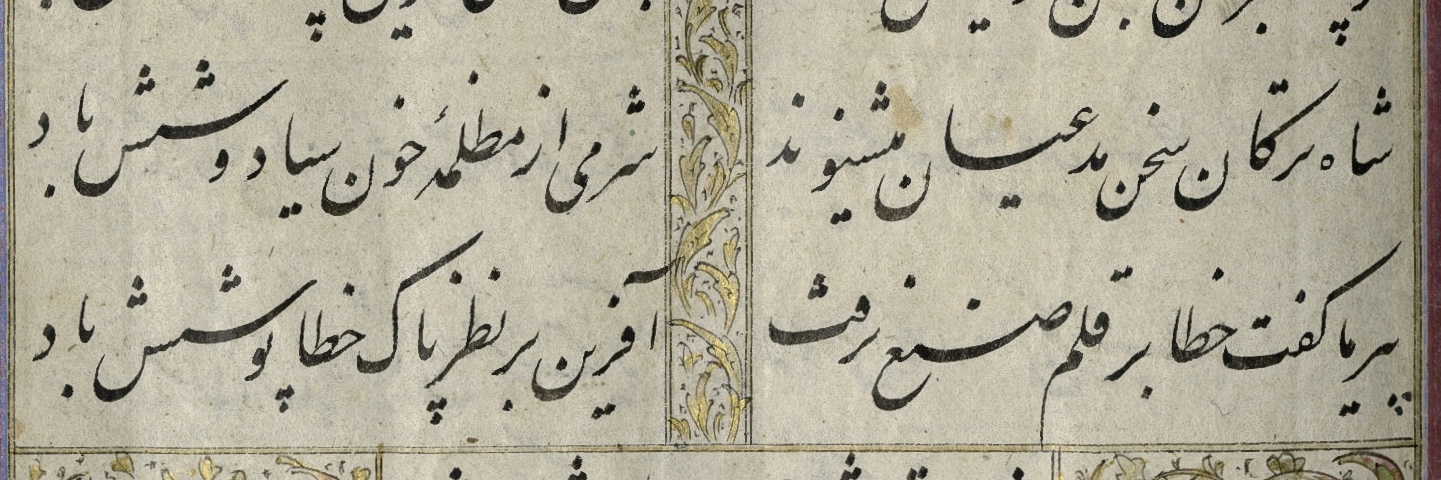 شاه ترکان سخن مدعیان میشنوند
شرمی از مظلمهٔ خون سیاوشش باد
پیر ما کفت خطا بر قلم صنع نرفت
آفرین بر نظر پاک خطا پوشش باد